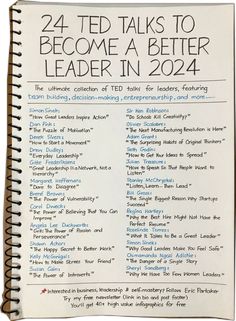 24 TED TALKS TO
BECOME A BETTER
LEADER IN 2024
The ultimate collection of TED talks for leaders, featuring
team building, decision-making, entrepreneurship, and more....
Simon Sinek:
"How Great Leaders Inspire Action"
Dan Pink:
"The Puzzle of Motivation"
Derek Sivers:
"How to Start a Movement"
Drew Dudley:
"Everyday Leadership"
"Great Leadership Is a Network, Not a
Hierarchy"
Margaret Heffernan:
"Dare to Disagree"
Brené Brown:
"The Power of Vulnerability"
Carol Dweck:
"The Power of Believing that You Can
Improve"
Angela Lee Duckworth:
"Grit: The Power of Passion and
Perseverance"
Shawn Achor:
"The Happy Secret to Better Work"
Kelly McGonigal:
"How to Make Stress Your Friend"
Susan Cain:
"The Power of Introverts"
Sir Ken Robinson:
"Do Schools Kill Creativity?"
Olivier Scalabre:
"The Next Manufacturing Revolution is Here"
Adam Grant:
"The Surprising Habits of Original Thinkers"
Seth Godin:
"How to Get Your Ideas to Spread"
Julian Treasure:
"How to Speak So That People Want to
Listen"
Stanley McChrystal:
"Listen, Learn... Then Lead"
Bill Gross:
"The Single Biggest Reason Why Startups
Succeed"
Regina Hartley:
"Why the Best Hire Might Not Have the
Perfect Resume"
Roselinde Torres:
"What It Takes to Be a Great Leader"
Simon Sinek:
"Why Good Leaders Make You Feel Safe"
Chimamanda Ngozi Adichie:
"The Danger of a Single Story"
Sheryl Sandberg:
"Why We Have Too Few Women Leaders"
Interested in business, leadership & self-mastery? Follow Eric Partaker
Try my free newsletter (link in bio and post footer)
You'll get 40+ high value infographics for free